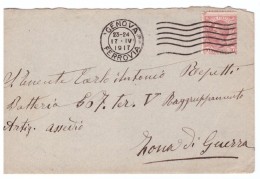 GENOVA
23-24
17·IV
1917
FERROVIA
S. Tenente Carlo Antonio Repetti
Batteria 607. ter. V Raggruppamento
Artig. assedio
Zona di Guerra